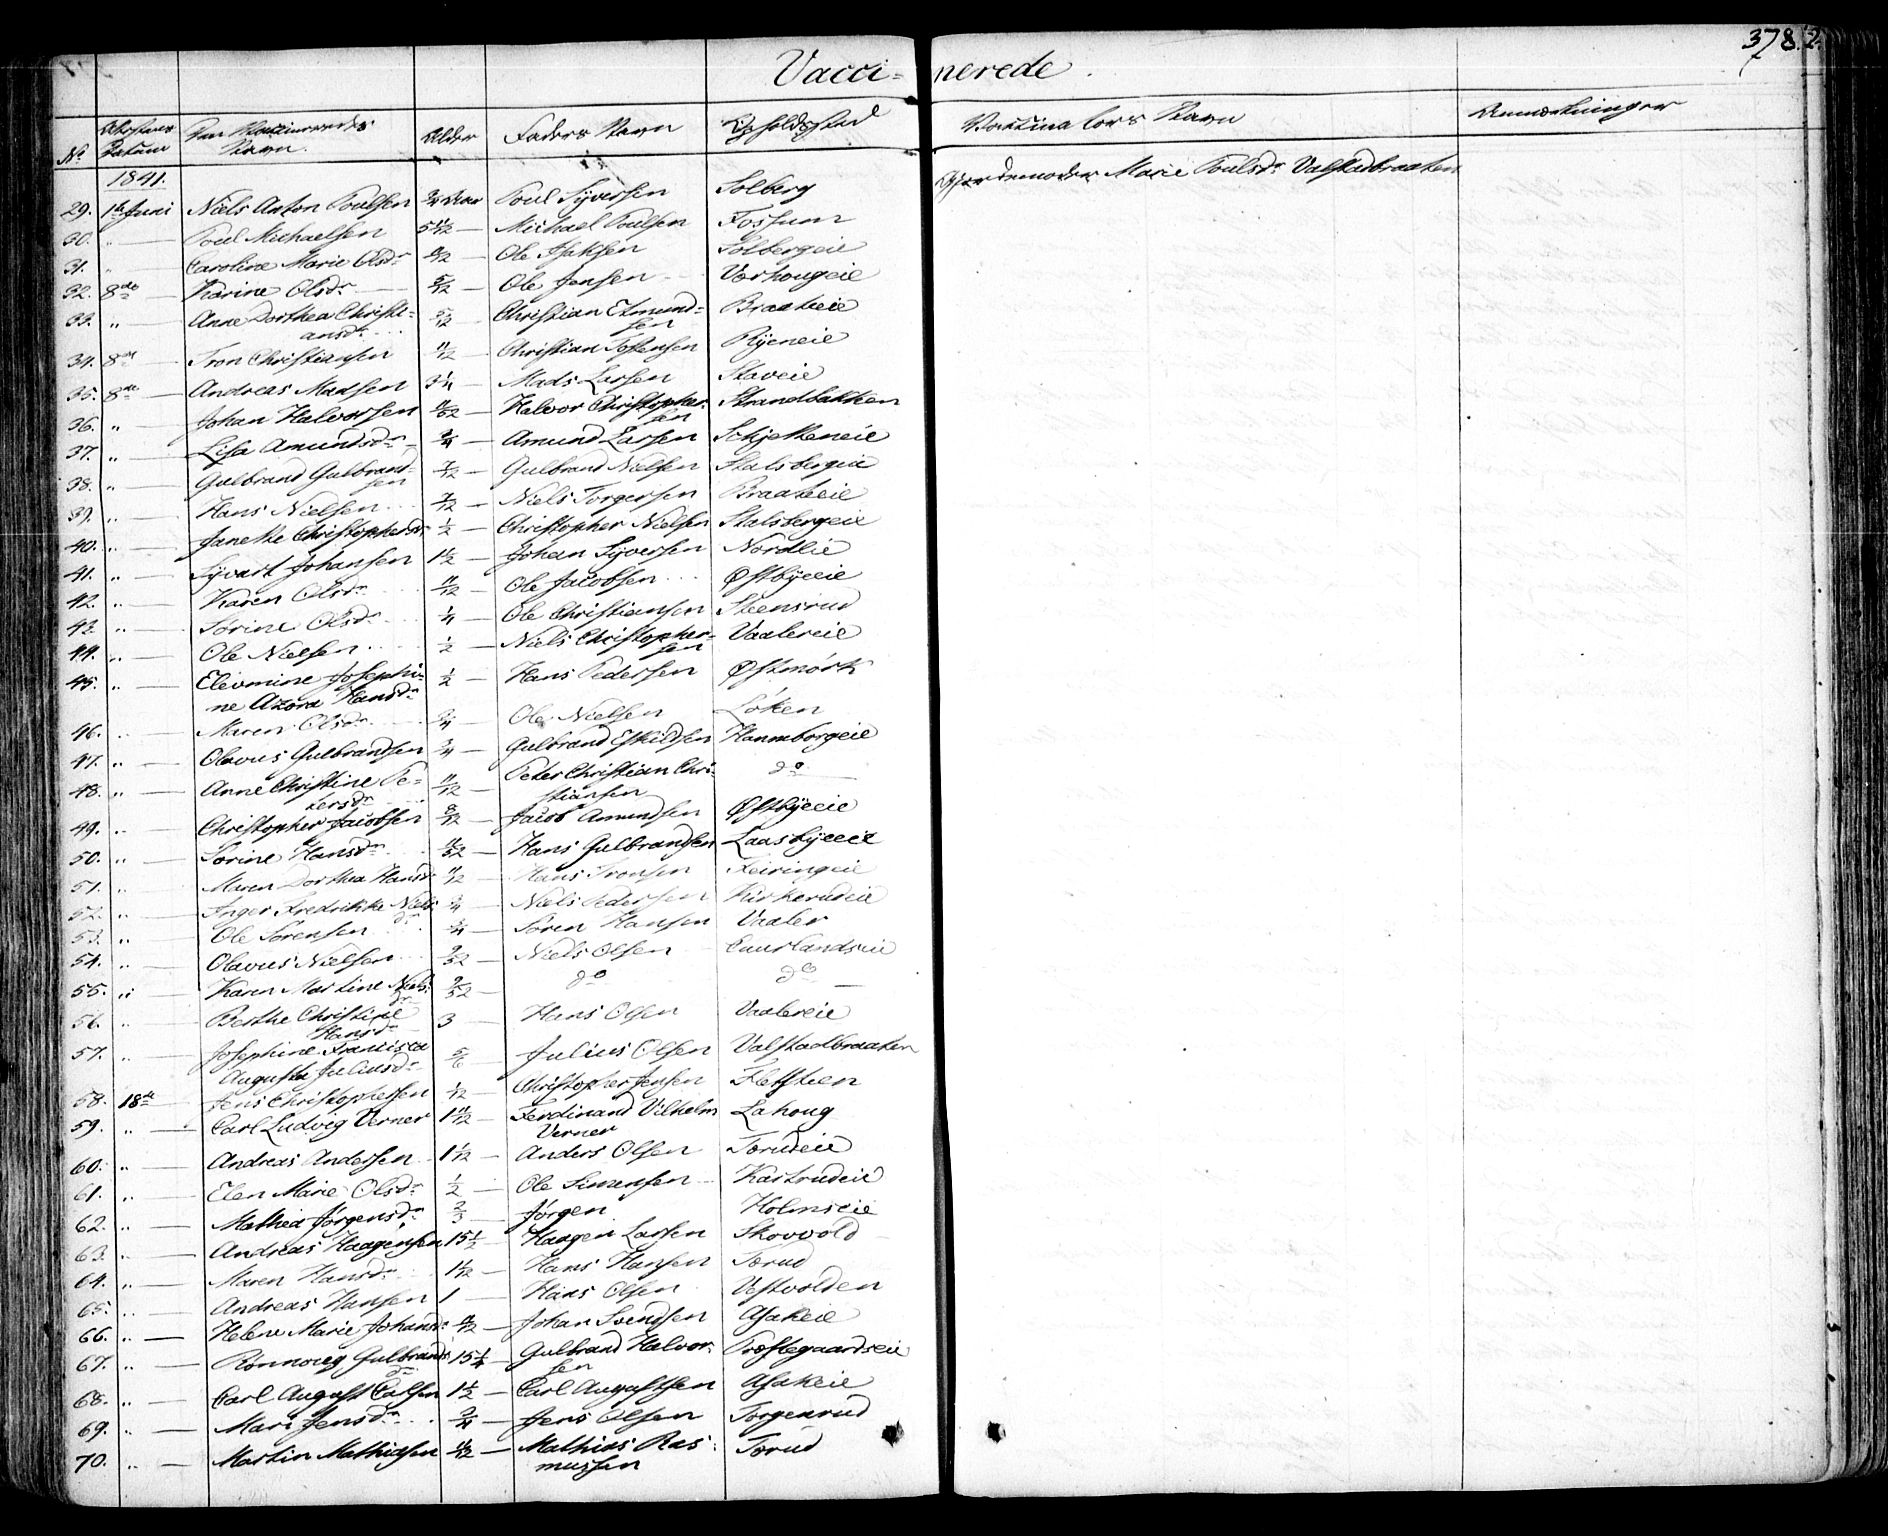 378.
Vacci= nerede
No Attestens Datum Den Vaccineredes Navn. Alder Faders Navn Opholdssted Vaccinateurs Navn Anmærkninger
1841.
29. 1ste Juni Niels Anton Poulsen 3/4 Aar Poul Syversen Solberg Gjordemoder Marie Poulsdr Valstadbraaten
30. " — Poul Michaelsen 5 11/12 — Michael Poulsen Fossum
31. " — Caroline Marie Olsdr 8/12 — Ole Isaksen Solbergeie
32. 8de — Karine Olsdr 5/12 — Ole Jensen Vorhougeie
33. " — Anne Dorthea Christi=
ansdr 5/12 — Christian Etmund=
sen Braateeie
34. 8de — Tron Christiansen 11/12 — Christian Tostensen Ryeneie
35. 8de — Andreas Madsen 3 1/4 — Mads Larsen Staveie
36. " — Johan Halvorsen 11/52 — Halvor Christopher=
sen Strandbakken
37. " — Lisa Amundsdr 3/4 — Amund Larsen Schjetteneie
38. " — Gulbrand Gulbrand=
sen 7/12 — Gulbrand Nielsen Stalsbergeie
39. " — Hans Nielsen 7/12 — Niels Torgersen Braateeie
40. " — Janette Christophersdr 1/2 — Christopher Nielsen Stalsbergeie
41. " — Syvart Johansen 1 1/2 — Johan Syversen Nordlie
42. " — Karen Olsdr 11/12 — Ole Jacobsen Østbyeeie
43. " — Sørine Olsdr 1/4 — Ole Christiansen Steensrud
44. " — Ole Nielsen 1/2 — Niels Christopher=
sen Vaalereie
45. " — Elevmine Josephi=
ne Azora Hansdr 1/2 — Hans Pedersen Østmørk
46. " — Maren Olsdr 3/4 Ole Nielsen Løken
47. " — Olavus Gulbrandsen 3/4 — Gulbrand Eskildsen Hammborgeie
48. " — Anne Christine Pe=
tersdr 11/12 — Peter Christian Chri=
stiansen do
49. " — Christopher Jacobsen 8/12 — Jacob Amundsen Østbyeeie
50. " — Sorine Hansdr 11/52 — Hans Gulbrandsen Laasbyeeie
51. " Maren Dorthea Hansdr 11/12 — Hans Tronsen Feiringeie
52. " — Inger Fredrikke Niels
dr 3/4 — Niels Pedersen Kirkerudeie
53. " — Ole Sørensen 3/4 — Søren Hansen Vaaler
54. " — Olavus Nielsen 9/52 — Niels Olsen Cuurlandseie
55. " — Karen Martine Niels
dr 9/52 — do do
56. " — Berthe Christine
Hansdr 3 — Hans Olsen Vaalereie
57. " — Josephine Francisca
Augusta Juliusdr 5/6 Julius Olsen Valstadbraaten
58. 18de Jens Christophersen 1/12 — Christopher Jensen Fletsteen
59. " — Carl Ludvig Verner 1 11/12 — Ferdinand Vilhelm
Verner Lahoug
60. " — Andreas Andersen 1 1/12 — Anders Olsen Torudeie
61. " — Elen Marie Olsdr 1/2 — Ole Simensen Kartrudeie
62. " — Mathea Jørgensdr 2/3 — Jørgen Holmseie
63. " — Andreas Haagensen 15 1/2 — Haagen Larsen Skovvold
64. " — Maren Hansdr 1 1/12 — Hans Hansen Torud
65. " — Andreas Hansen 1 — Hans Olsen Vestvolden
66. " — Helene Marie Johansdr 8/12 — Johan Svendsen Asakeie
67. " — Rønnoug Gulbrands
dr 15 1/4 — Gulbrand Halvor=
sen Præstegaardseie
68. " — Carl August Carlsen 1 1/2 — Carl Augustsen Asakeie
69. " — Mari Jensdr 3/4 — Jens Olsen Torgenrud
70. " — Martin Mathiasen 11/12 — Mathias Ras=
mussen Torud